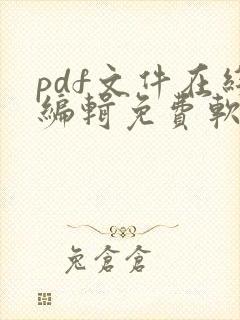 pdf文件在線
編輯免費軟
兔倉倉